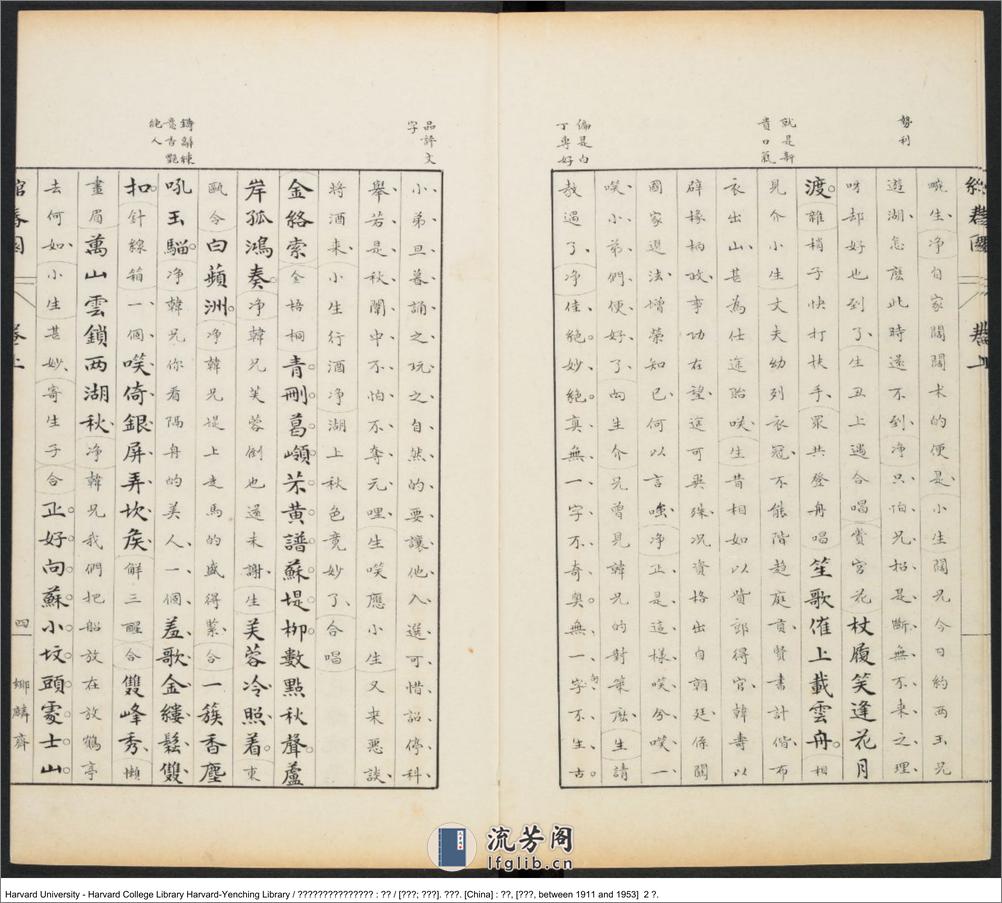 勢利
就是新
貴口氣
偏是白
丁專好
綰春園
卷上
畹生淨自家闊闊术的便是小生闊兄今日約兩玉兄
遊湖怎麽此時還不到淨只怕兄招是斷無不來之理
呀却好也到了生丑上遇合唱賞宮花杖履笑逢花月
渡雜梢子快打扶手眾共登舟唱笙歌催上載雲舟相
見介小生文夫幼列衣冠不能階趨庭貢賢書計偕布
衣出山甚為仕途貽咲生昔相如以貲郎得官韓壽以
辟掾柄政事功在望這可與殊况資格出自朝廷係關
國家選法憎榮知已何以言嗤淨正是這樣嘆兮嘆一
嘆小弟們便好了向生介兄曾見韓兄的對策麽生請
教過了淨佳絕妙絕真無一字不奇奧無一字不生古
品評文
字
鑄辭棟
意古艷
絕人
小弟旦暮誦之玩之自然的要讓他入選可惜詔停科
舉若是秋闈中不怕不奪元哩生嘆應小生又来惡談
将酒来小生行酒淨湖上秋色竟妙了合唱
金絡索金梧桐青刪葛嶺茶黄譜蘇堤柳數點秋聲蘆
岸孤鴻奏淨韓兄芙蓉倒也還未謝生芙蓉冷照着東
甌令白蘋洲淨韓兄堤上走馬的盛得緊合一簇香塵
吼玉騮淨韓兄你看隔舟的美人一個羞歌金縷鬆雙
扣針線箱一個嘆倚銀屏弄坎矦解三酲合雙峰秀懶
畫眉萬山雲鎖西湖秋淨韓兄我們把船放在放鶴亭
去何如小生甚妙寄生子合正好向蘇小坟頭處士山
綰春園
卷上
四
娜嬛齋
流芳阁
lfglib.cn
Harvard University - Harvard College Library Harvard-Yenching Library / ??????????????? : ?? / [???; ???]. ???. [China] : ??, [???, between 1911 and 1953] 2 ?.